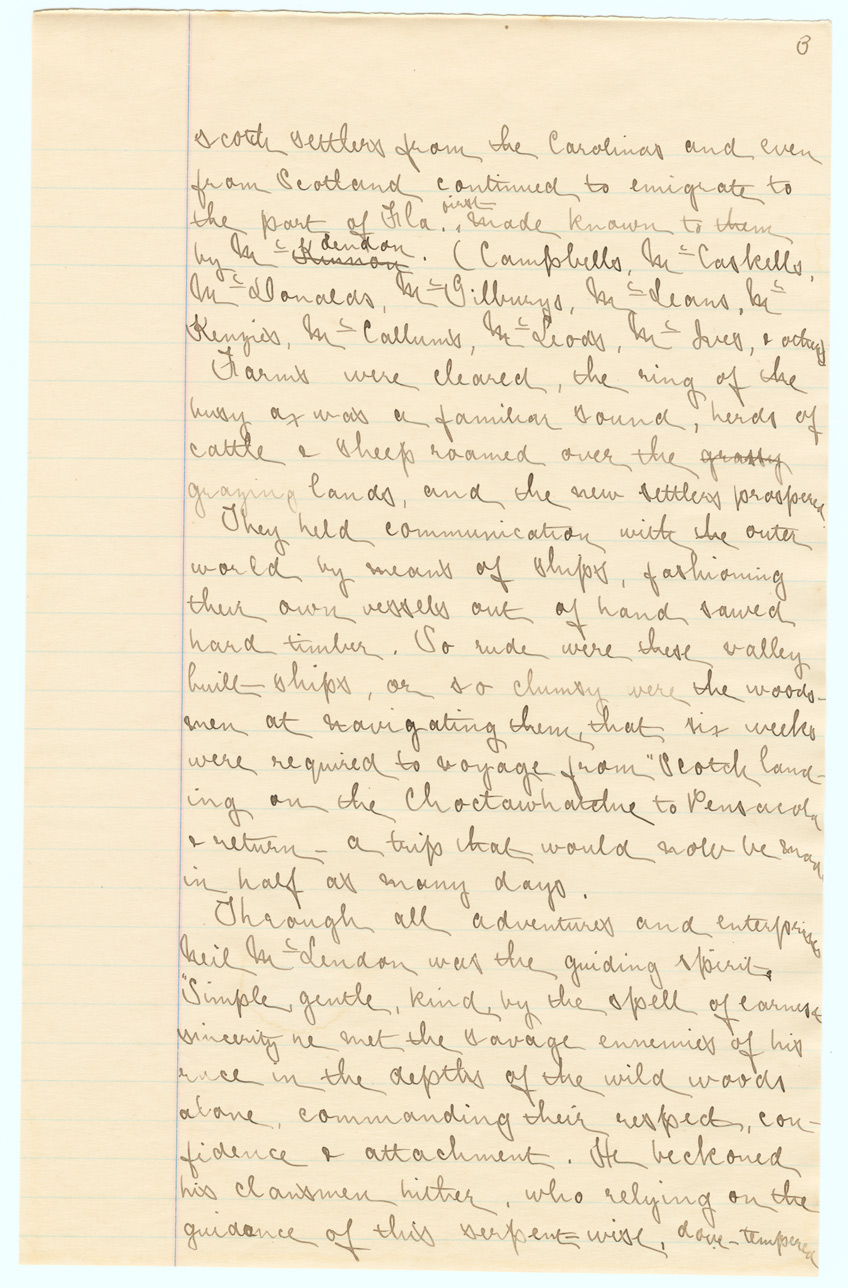 3
Scotch settlers from the Carolinas and even
from Scotland continued to emigrate to
the part of Fla., first made known to them
by Mc Kinnon Lendon. (Campbells, McCaskells,
McDonalds, McGilburys, McLeans, Mc
Kenzies, McCallums, McLeods, McIves, & others
Farms were cleared, the ring of the
busy ax was a familiar sound, herds of
cattle & sheep roamed over the grassy
grazing lands, and the new settlers prospered.
They held communication with the outer
world by means of ships, fashioning
their own vessels out of hand sawed
hard timber. So rude were these valley
built ships, or so clumsy were the woods-
men at navigating them, that six weeks
were required to voyage from "Scotch land-
ing on the Choctawhatchie to Pensacola
& return – a trip that would now be made
in half as many days.
Through all adventures and enterprises
Neil McLendon was the guiding spirit.
"Simple, gentle, kind, by the spell of earnest
sincerity he met the savage ennemies of his
race in the depths of the wild woods
alone, commanding their respect, con-
fidence & attachment. He beckoned
his clansmen hither, who relying on the
guidance of this serpent-wise, dove-tempered